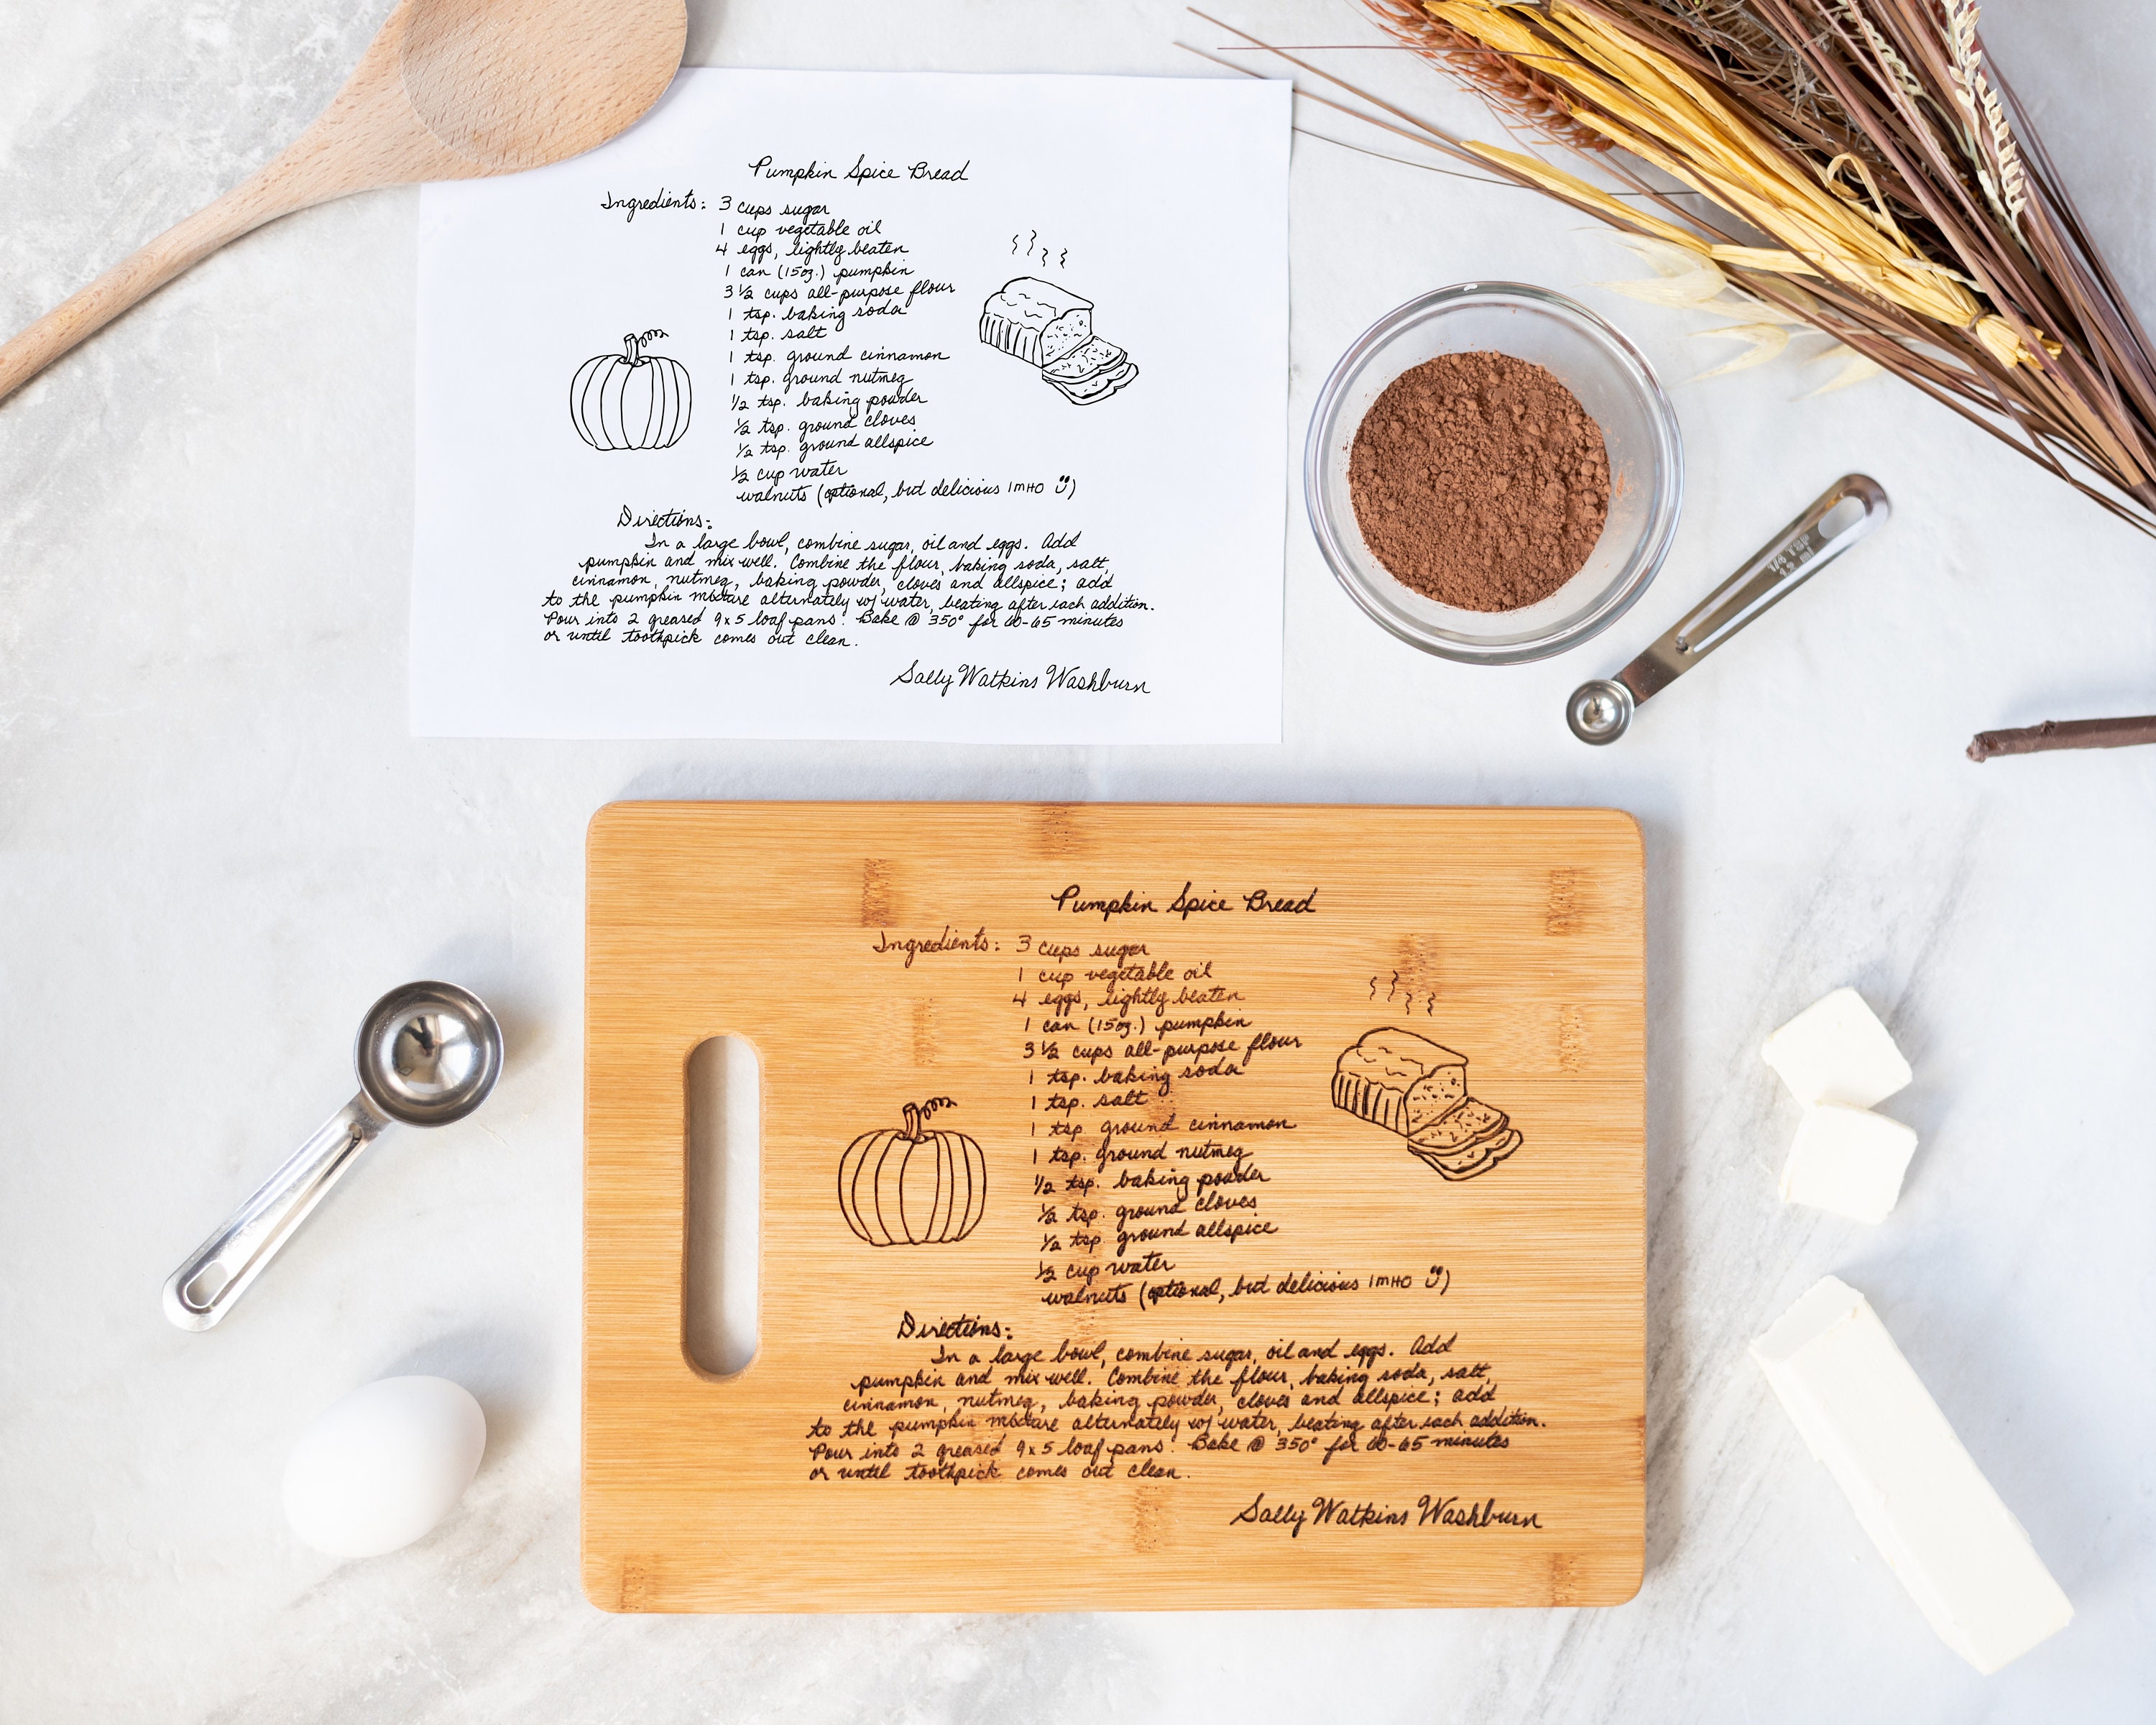 Pumpkin Spice Bread
Ingredients: 3 cups sugar
1 cup vegetable oil
4 eggs, lightly beaten
1 can (15oz.) pumpkin
3 1/2 cups all-purpose flour
1 tsp. baking soda
1 tsp. salt
1 tsp. ground cinnamon
1 tsp. ground nutmeg
1/2 tsp. baking powder
1/2 tsp. ground cloves
1/2 tsp. ground allspice
1/2 cup water
walnuts (optional, but delicious IMHO ü)
Directions:
In a large bowl, combine sugar, oil and eggs. Add
pumpkin and mix well. Combine the flour, baking soda, salt,
cinnamon, nutmeg, baking powder, cloves and allspice; add
to the pumpkin mixture alternately w/ water, beating after each addition.
Pour into 2 greased 9x5 loaf pans. Bake @ 350° for 60-65 minutes
or until toothpick comes out clean.
Sally Watkins Washburn
1/4 TSP
1.2 ml
Pumpkin Spice Bread
Ingredients: 3 cups sugar
1 cup vegetable oil
4 eggs, lightly beaten
1 can (15oz.) pumpkin
3 1/2 cups all-purpose flour
1 tsp. baking soda
1 tsp. salt
1 tsp. ground cinnamon
1 tsp. ground nutmeg
1/2 tsp. baking powder
1/2 tsp. ground cloves
1/2 tsp. ground allspice
1/2 cup water
walnuts (optional, but delicious IMHO ü)
Directions:
In a large bowl, combine sugar, oil and eggs. Add
pumpkin and mix well. Combine the flour, baking soda, salt,
cinnamon, nutmeg, baking powder, cloves and allspice; add
to the pumpkin mixture alternately w/ water, beating after each addition.
Pour into 2 greased 9x5 loaf pans. Bake @ 350° for 60-65 minutes
or until toothpick comes out clean.
Sally Watkins Washburn